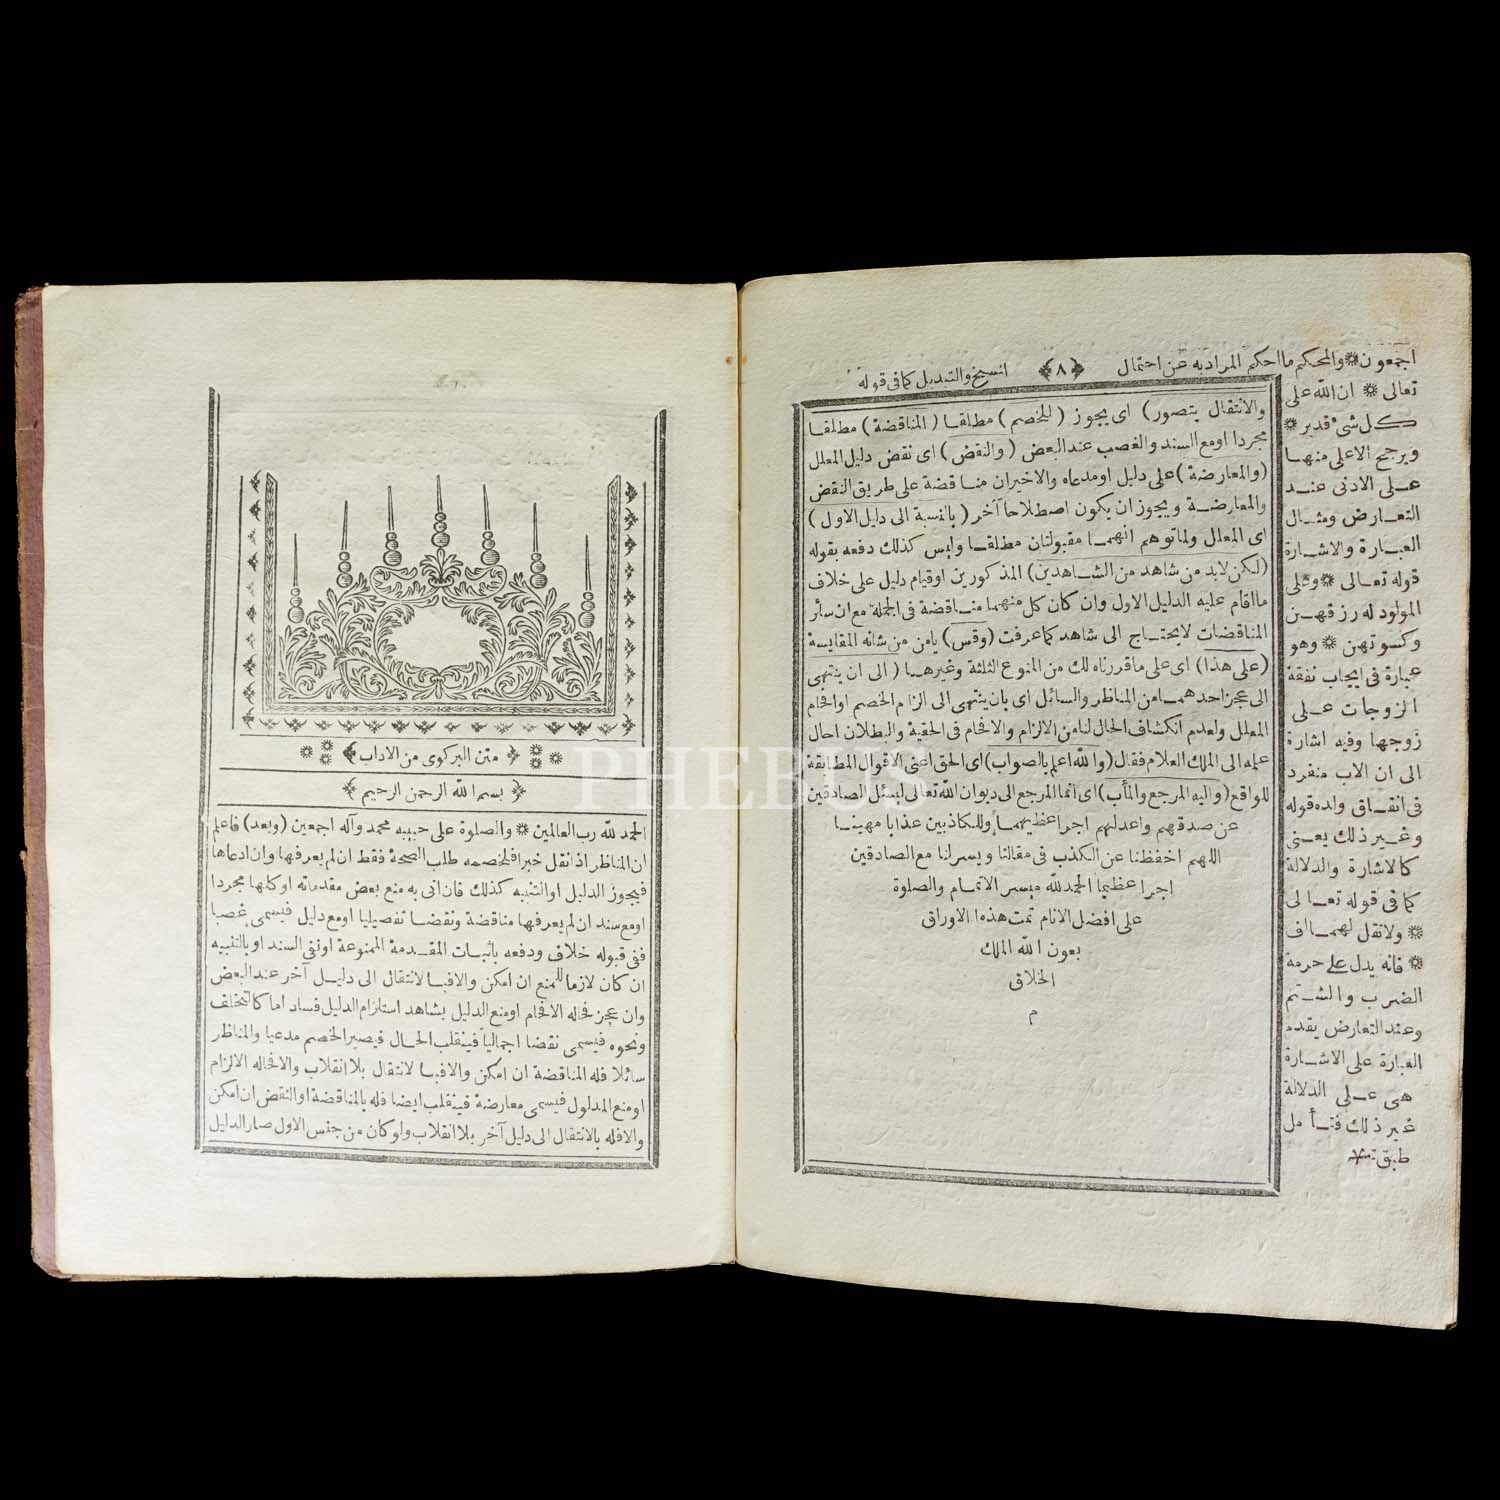 اجمعون * والمحكم ما احكم المراد به عن احتمال ﴿ ٨ ﴾ النسخ والتبديل كما فى قوله
تعالى * ان الله على
كل شئ قدير *
ويرجح الاعلى منهما
على الادنى عند
التعارض ومثال
العبارة والاشارة
قوله تعالى * وعلى
المولود له رزقهن
وكسوتهن * وهو
عبارة فى ايجاب نفقة
الزوجات على
زوجها وفيه اشارة
الى ان الاب منفرد
فى انفاق ولده قوله
وغير ذلك يعنى
كالاشارة والدلالة
كما فى قوله تعالى
* ولا تقل لهما اف
* فانه يدل على حرمة
الضرب والشتم
وعند التعارض يقدم
العبارة على الاشارة
هى على الدلالة
غير ذلك فتأمل
طبق
والانتقال يتصور) اى يجوز (للخصم) مطلقا (المناقضة) مطلقا
مجردا او مع السند والغصب عند البعض (والنقض) اى نقض دليل المعلل
(والمعارضة) على دليل او مدعاه والاخيران مناقضة على طريق النقض
والمعارضة ويجوز ان يكون اصطلاحا آخر (بالنسبة الى دليل الاول)
اى المعلل ولما توهم انهما مقبولتان مطلقا وليس كذلك دفعه بقوله
(لكن لابد من شاهد من الشاهدين) المذكورين او قيام دليل على خلاف
ما اقام عليه الدليل الاول وان كان كل منهما مناقضة فى الجملة مع ان سائر
المناقضات لا يحتاج الى شاهد كما عرفت (وقس) يا من من شانه المقايسة
(على هذا) اى على ما قررناه لك من المنوع الثلثة وغيرها (الى ان ينتهى
الى عجز احدهما من المناظر والسائل اى بان ينتهى الى الزام الخصم او افحام
المعلل ولعدم انكشاف الحال لنا من الالزام والافحام فى الحقية والبطلان احال
علمه الى الملك العلام فقال (والله اعلم بالصواب) اى الحق اعنى الاقوال المطابقة
للواقع (واليه المرجع والمأب) اى انما المرجع الى ديوان الله تعالى ليسئل الصادقين
عن صدقهم واعد لهم اجرا عظيما وللكاذبين عذابا مهينا
اللهم احفظنا عن الكذب فى مقالنا ويسرلنا مع الصادقين
اجرا عظيما الحمد لله ميسر الاتمام والصلوة
على افضل الانام تمت هذه الاوراق
بعون الله الملك
الخلاق
م
﴿ متن البركوى من الاداب ﴾
﴿ بسم الله الرحمن الرحيم ﴾
الحمد لله رب العالمين * والصلوة على حبيبه محمد وآله اجمعين (وبعد) فاعلم
ان المناظر اذا نقل خبرا فلخصمه طلب الصحة فقط ان لم يعرفها وان ادعاها
فيجوز الدليل او التنبيه كذلك فان اتى به منع بعض مقدماته او كلها مجردا
او مع سند ان لم يعرفها مناقضة ونقضا تفصيليا او مع دليل فيسمى غصبا
ففى قبوله خلاف ودفعه باثبات المقدمة الممنوعة او نفى السند او بالتنبيه
ان كان لازما للمنع ان امكن والا فبالانتقال الى دليل آخر عند البعض
وان عجز فحاله الافحام او منع الدليل بشاهد استلزام الدليل فسادا ما كالتخلف
ونحوه فيسمى نقضا اجماليا فينقلب الحال فيصير الخصم مدعيا والمناظر
سائلا فله المناقضة ان امكن والا فبالانتقال بلا انقلاب والا فحاله الالزام
او منع المدلول فيسمى معارضة فينقلب ايضا فله بالمناقضة او النقض ان امكن
والا فله بالانتقال الى دليل آخر بلا انقلاب ولو كان من جنس الاول صار الدليل
PHEBUS